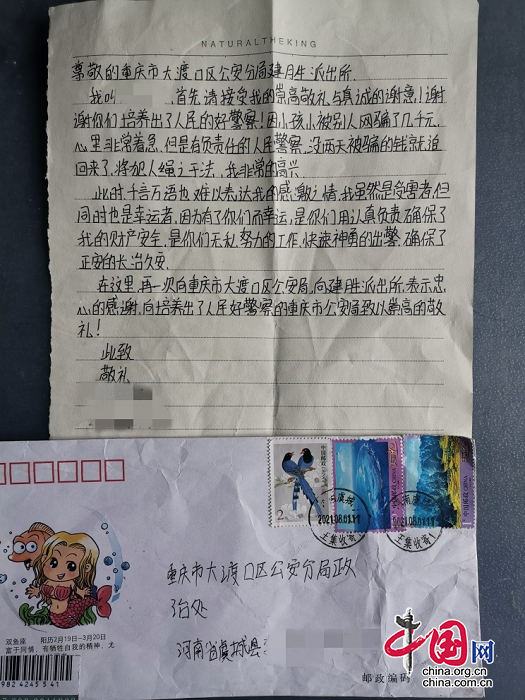 NATURALTHEKING
尊敬的重庆市大渡口区公安分局建胜派出所.
我叫 首先请接受我的崇高敬礼与真诚的谢意!谢
谢你们培养出了人民的好警察!因小孩小被别人网骗了几千元,
心里非常着急,但是有负责任的人民警察,没两天被骗的钱就追
回来了,将犯人绳之于法,我非常的高兴.
此时,千言万语也难以表达我的感激之情,我虽然是受害者,但
同时也是幸运者,因为有了你们而幸运,是你们用认真负责确保了
我的财产安全,是你们无私努力的工作,快速神勇的出警,确保了
正安的长治久安.
在这里,再一次向重庆市大渡口区公安局,向建胜派出所,表示忠
心的感谢,向培养出了人民好警察的重庆市公安局致以崇高的敬
礼!
此致
敬礼
中国邮政
2
中国邮政
2021.08.01.11
王集收寄
2021.08.01.11
王集收寄
重庆市大渡口区公安分局政
治处
河南省虞城县
双鱼座 阳历2月19日—3月20日
富于同情,有牺牲自我的精神,尤
982 4245 5 41
邮政编码
中国网
china.org.cn
china.com.cn